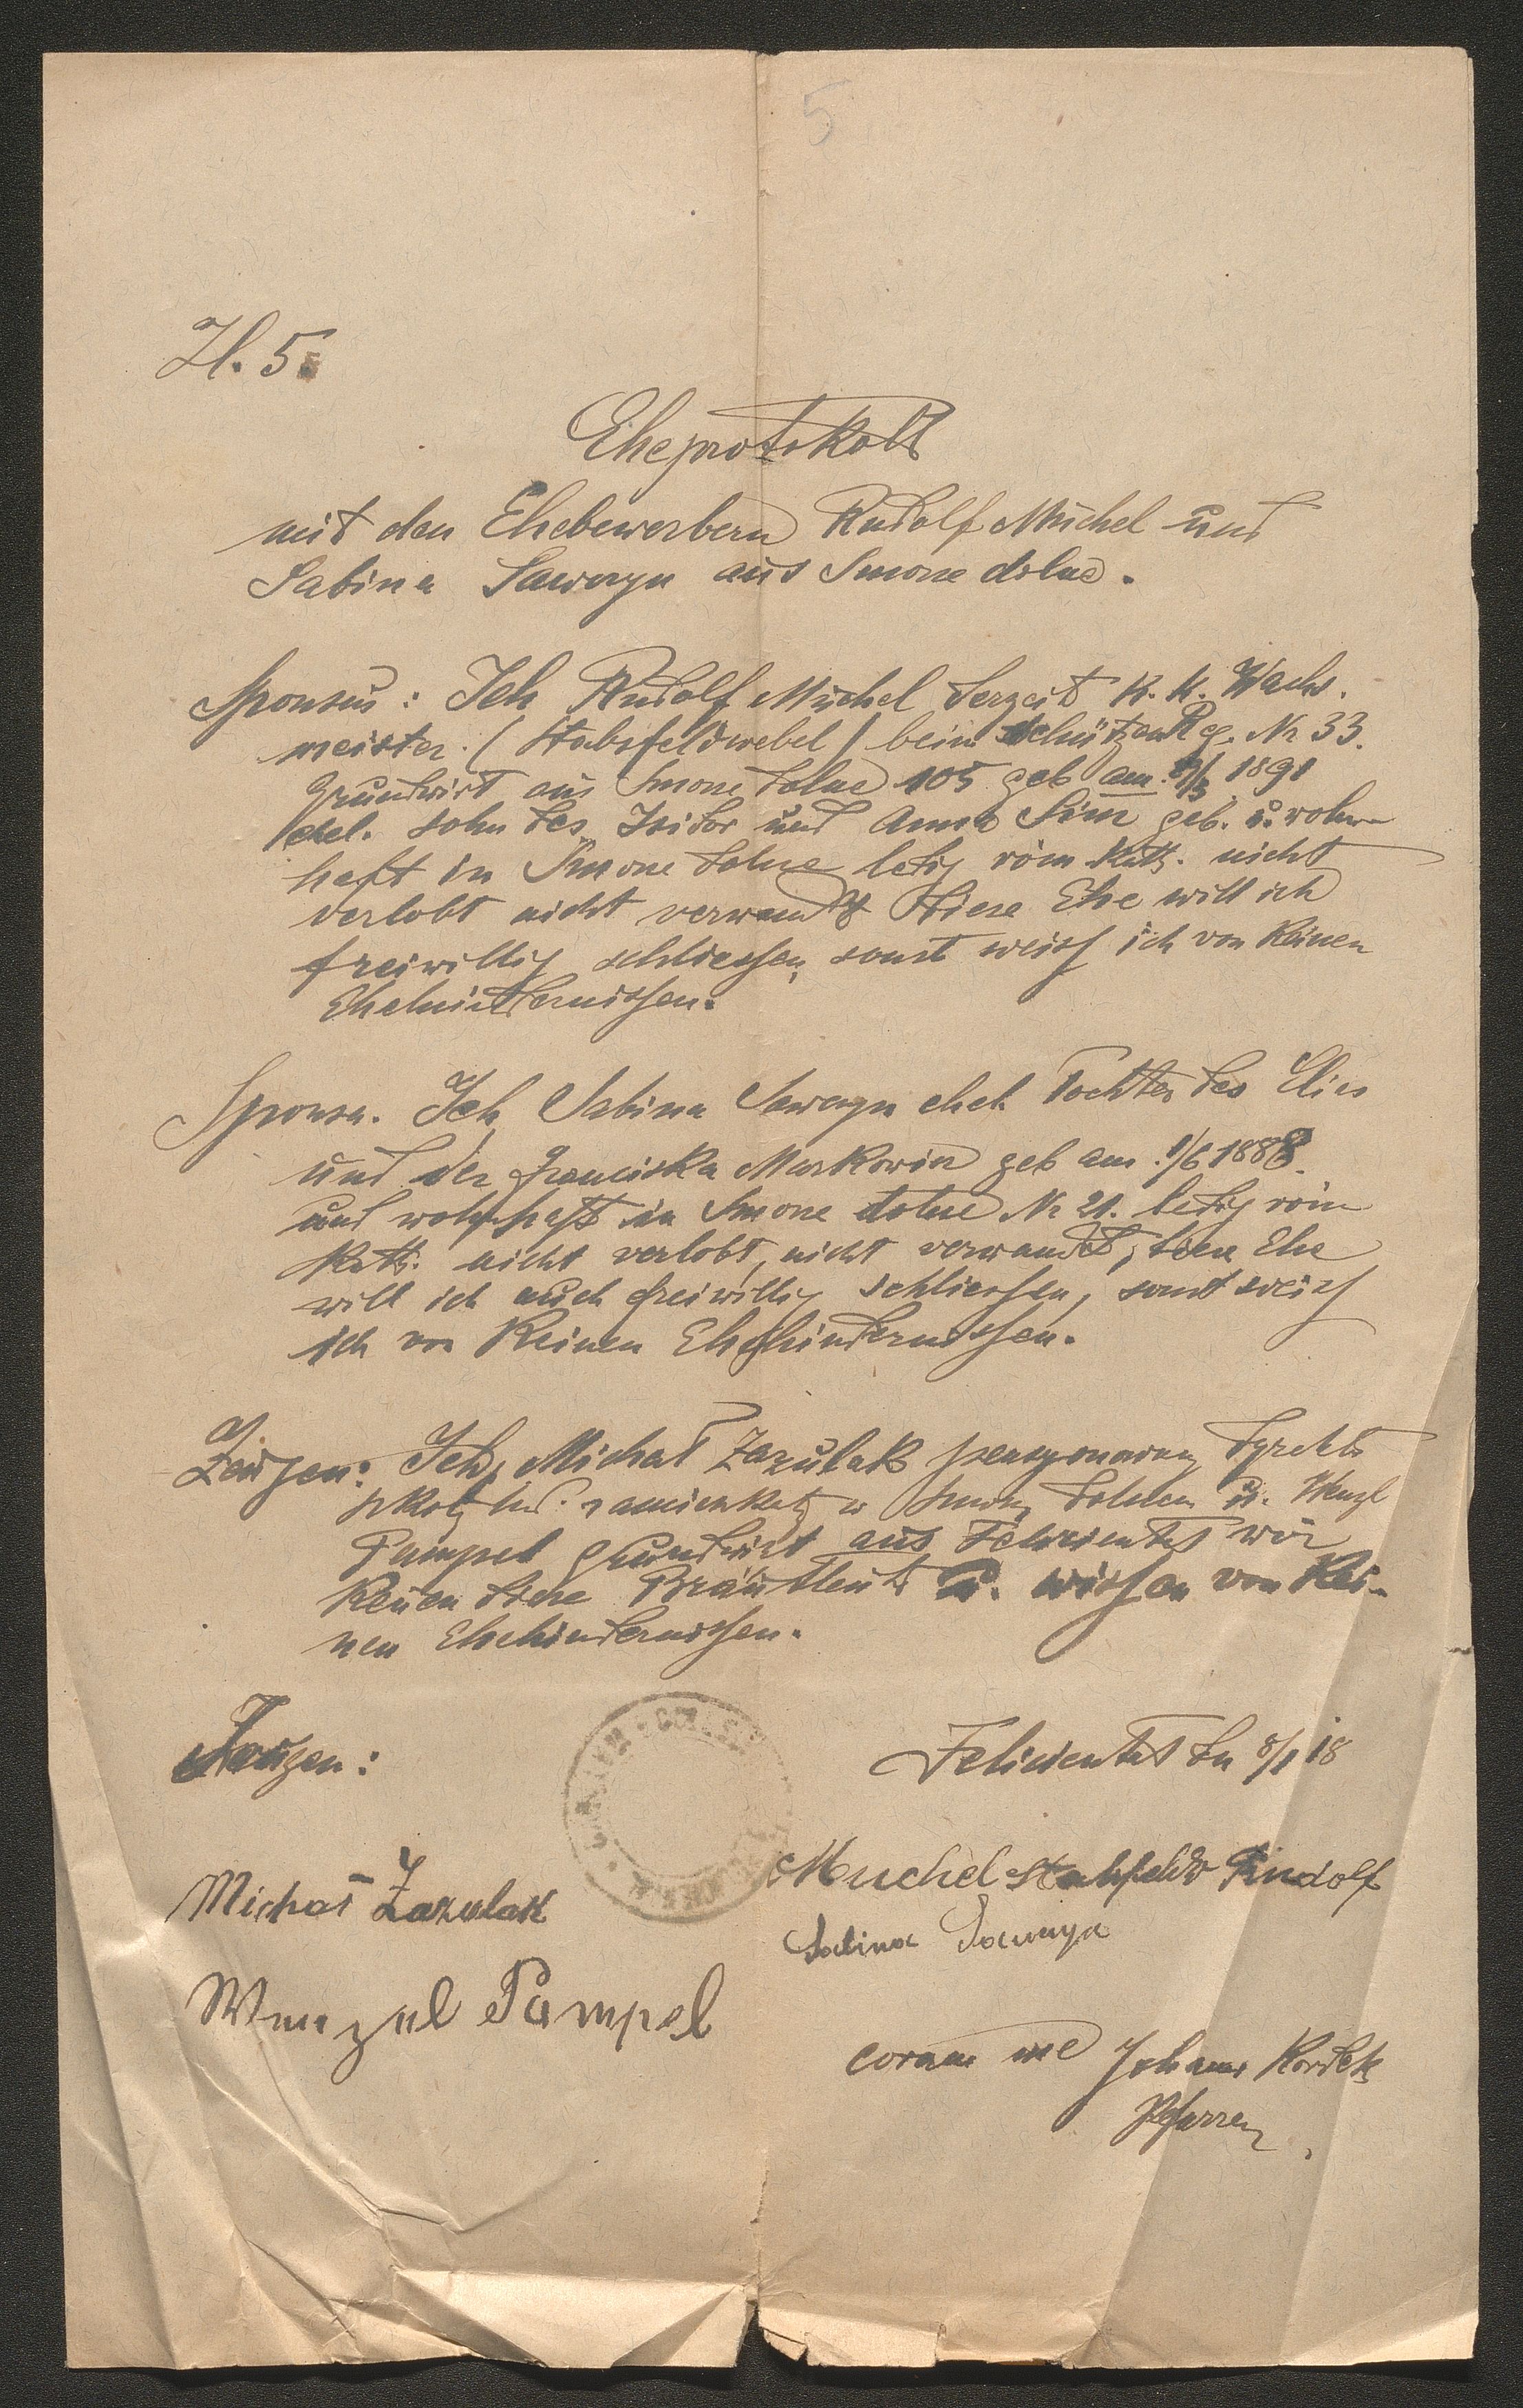 5
Zl. 5.
Eheprotokoll
mit den Ehebewerbern Rudolf Muchel und
Sabina Sawaryn aus Smorze dolne.
Sponsus: Ich Rudolf Muchel derzeit K. K. Wach-
meister. (Stabsfeldwebel) beim Schützen Reg. Nr 33.
Grundwirt aus Smorze dolne 105 geb am 1891
ehel. sohn des Isidor und Anna geb. u. wohn-
haft in Smorze dolne ledig röm Kath. nicht
verlobt nicht verwandt diese Ehe will ich
freiwillig schliessen, sonst weiss ich von keinen
Ehehindernissen.
Sponsa. Ich Sabina Sawaryn ehel. Tochter des Elias
und der Franciska geb am 1/6 1888.
und wohnhaft in Smorze dolne Nr 21. ledig röm
Kath. nicht verlobt, nicht verwandt, diese Ehe
will ich auch freiwillig schliessen, sonst weiss
ich von keinen Ehehindernissen.
Zeugen: Ich, Michał Zazulak
w u. Wenzl
Pampel Grundwirt aus Felizienthal wir
kenen diese Brautleute u. wissen von kei-
nen Ehehindernissen.
Zeugen:
Felizienthal den 8/1 18
Michał Zazulak
Muchel Rudolf
Sabina Sawaryn
Wenzel Pampel
coram me Johann
Pfarrer